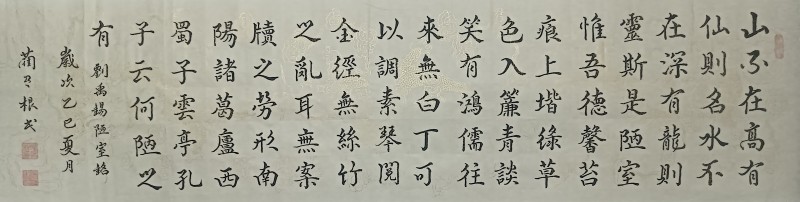 山不在高有
仙則名水不
在深有龍則
靈斯是陋室
惟吾德馨苔
痕上堦綠草
色入簾青談
笑有鴻儒往
來無白丁可
以調素琴閱
金經無絲竹
之亂耳無案
牘之勞形南
陽諸葛廬西
蜀子雲亭孔
子云何陋之
有 劉禹錫陋室銘
歲次乙巳夏月